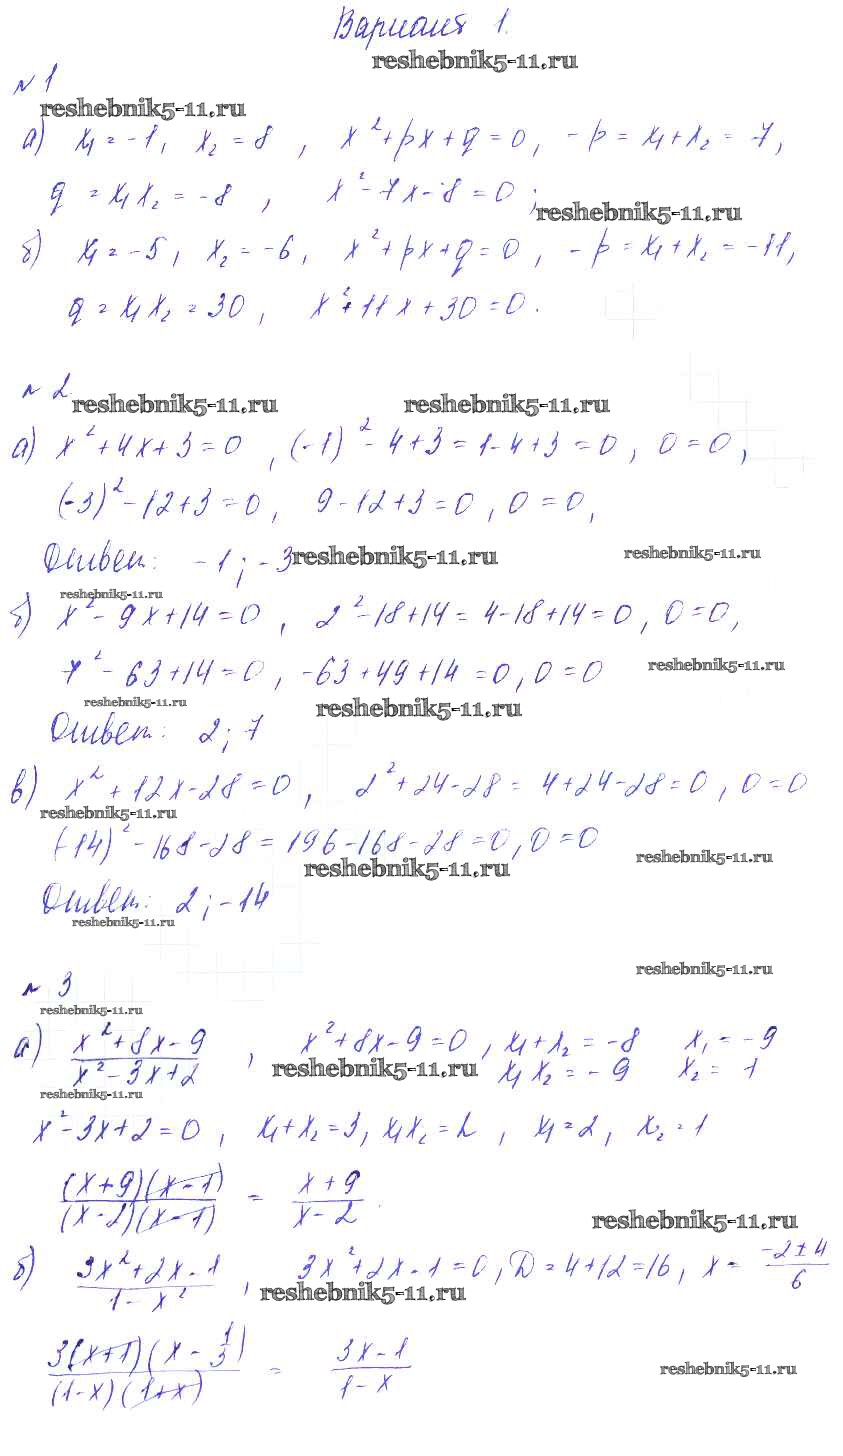 Вариант 1.
reshebnik5-11.ru
№ 1
reshebnik5-11.ru
а) x₁ = -1, x₂ = 8, x² + px + q = 0, -p = x₁ + x₂ = 7,
q = x₁x₂ = -8, x² - 7x - 8 = 0;
reshebnik5-11.ru
б) x₁ = -5, x₂ = -6, x² + px + q = 0, -p = x₁ + x₂ = -11,
q = x₁x₂ = 30, x² + 11x + 30 = 0.
№ 2
reshebnik5-11.ru reshebnik5-11.ru
а) x² + 4x + 3 = 0, (-1)² - 4 + 3 = 1 - 4 + 3 = 0, 0 = 0,
(-3)² - 12 + 3 = 0, 9 - 12 + 3 = 0, 0 = 0,
Ответ: -1; -3 reshebnik5-11.ru reshebnik5-11.ru
reshebnik5-11.ru
б) x² - 9x + 14 = 0, 2² - 18 + 14 = 4 - 18 + 14 = 0, 0 = 0,
7² - 63 + 14 = 0, -63 + 49 + 14 = 0, 0 = 0 reshebnik5-11.ru
reshebnik5-11.ru reshebnik5-11.ru
Ответ: 2; 7
в) x² + 12x - 28 = 0, 2² + 24 - 28 = 4 + 24 - 28 = 0, 0 = 0
reshebnik5-11.ru
(-14)² - 168 - 28 = 196 - 168 - 28 = 0, 0 = 0
reshebnik5-11.ru reshebnik5-11.ru
Ответ: 2; -14
reshebnik5-11.ru
reshebnik5-11.ru
№ 3
reshebnik5-11.ru
а) (x² + 8x - 9)/(x² - 3x + 2), x² + 8x - 9 = 0, x₁ + x₂ = -8 x₁ = -9
reshebnik5-11.ru x₁x₂ = -9 x₂ = 1
reshebnik5-11.ru
x² - 3x + 2 = 0, x₁ + x₂ = 3, x₁x₂ = 2, x₁ = 2, x₂ = 1
(x + 9)(x - 1)/(x - 2)(x - 1) = (x + 9)/(x - 2).
reshebnik5-11.ru
б) (3x² + 2x - 1)/(1 - x²), 3x² + 2x - 1 = 0, D = 4 + 12 = 16, x = (-2 ± 4)/6
reshebnik5-11.ru
3(x + 1)(x - 1/3)/(1 - x)(1 + x) = (3x - 1)/(1 - x)
reshebnik5-11.ru